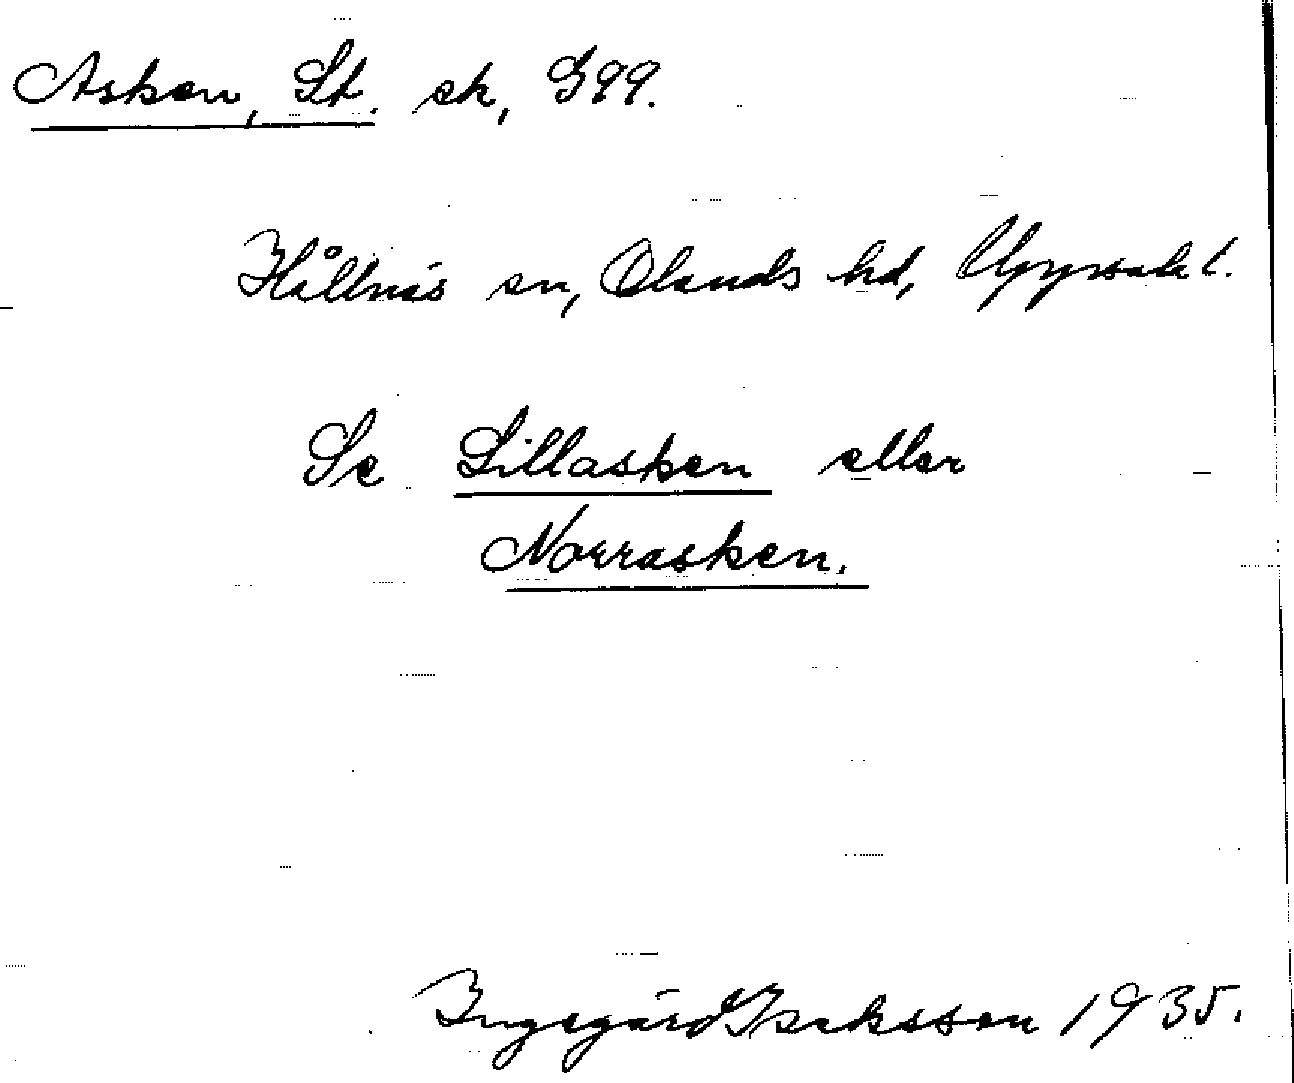 Asken, St. sk, G99.
Hållnäs sn, Olands hd, Uppsala l.
Se Lillasken eller
Norrasken.
Ingegärd Isaksson 1935.